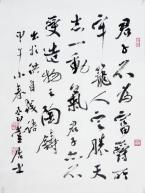 君子不為富爵所
牢籠人定勝天
志一動氣君子不
受造物之陶鑄
洪自誠
甲午小居士